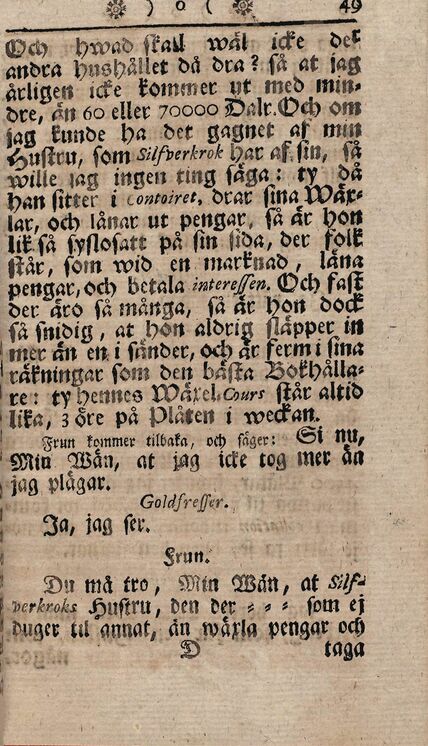 ) o ( 49
Och hwad skall wäl icke det
andra hushållet då dra? så at jag
årligen icke kommer ut med min-
dre, än 60 eller 70000 Dalr. Och om
jag kunde ha det gagnet af min
Hustru, som Silfverkrok har af sin, så
wille jag ingen ting säga: ty då
han sitter i Contoiret, drar sina Wäx-
lar, och lånar ut pengar, så är hon
lik så syslosatt på sin sida, der folk
står, som wid en marknad, låna
pengar, och betala interessen. Och fast
der äro så många, så är hon dock
så snidig, at hon aldrig släpper in
mer än en i sänder, och är ferm i sina
räkningar som den bästa Bokhålla-
re: ty hennes Wäxel-Cours står altid
lika, 3 öre på Plåten i weckan.
Frun kommer tilbaka, och säger: Si nu,
Min Wän, at jag icke tog mer än
jag plägar.
Goldfresser.
Ja, jag ser.
Frun.
Du må tro, Min Wän, at Silf-
verkroks Hustru, den der = = = som ej
duger til annat, än wäxla pengar och
D taga